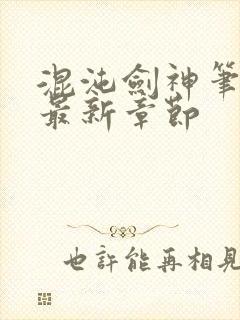 混沌劍神筆
最新章節
也許能再相見